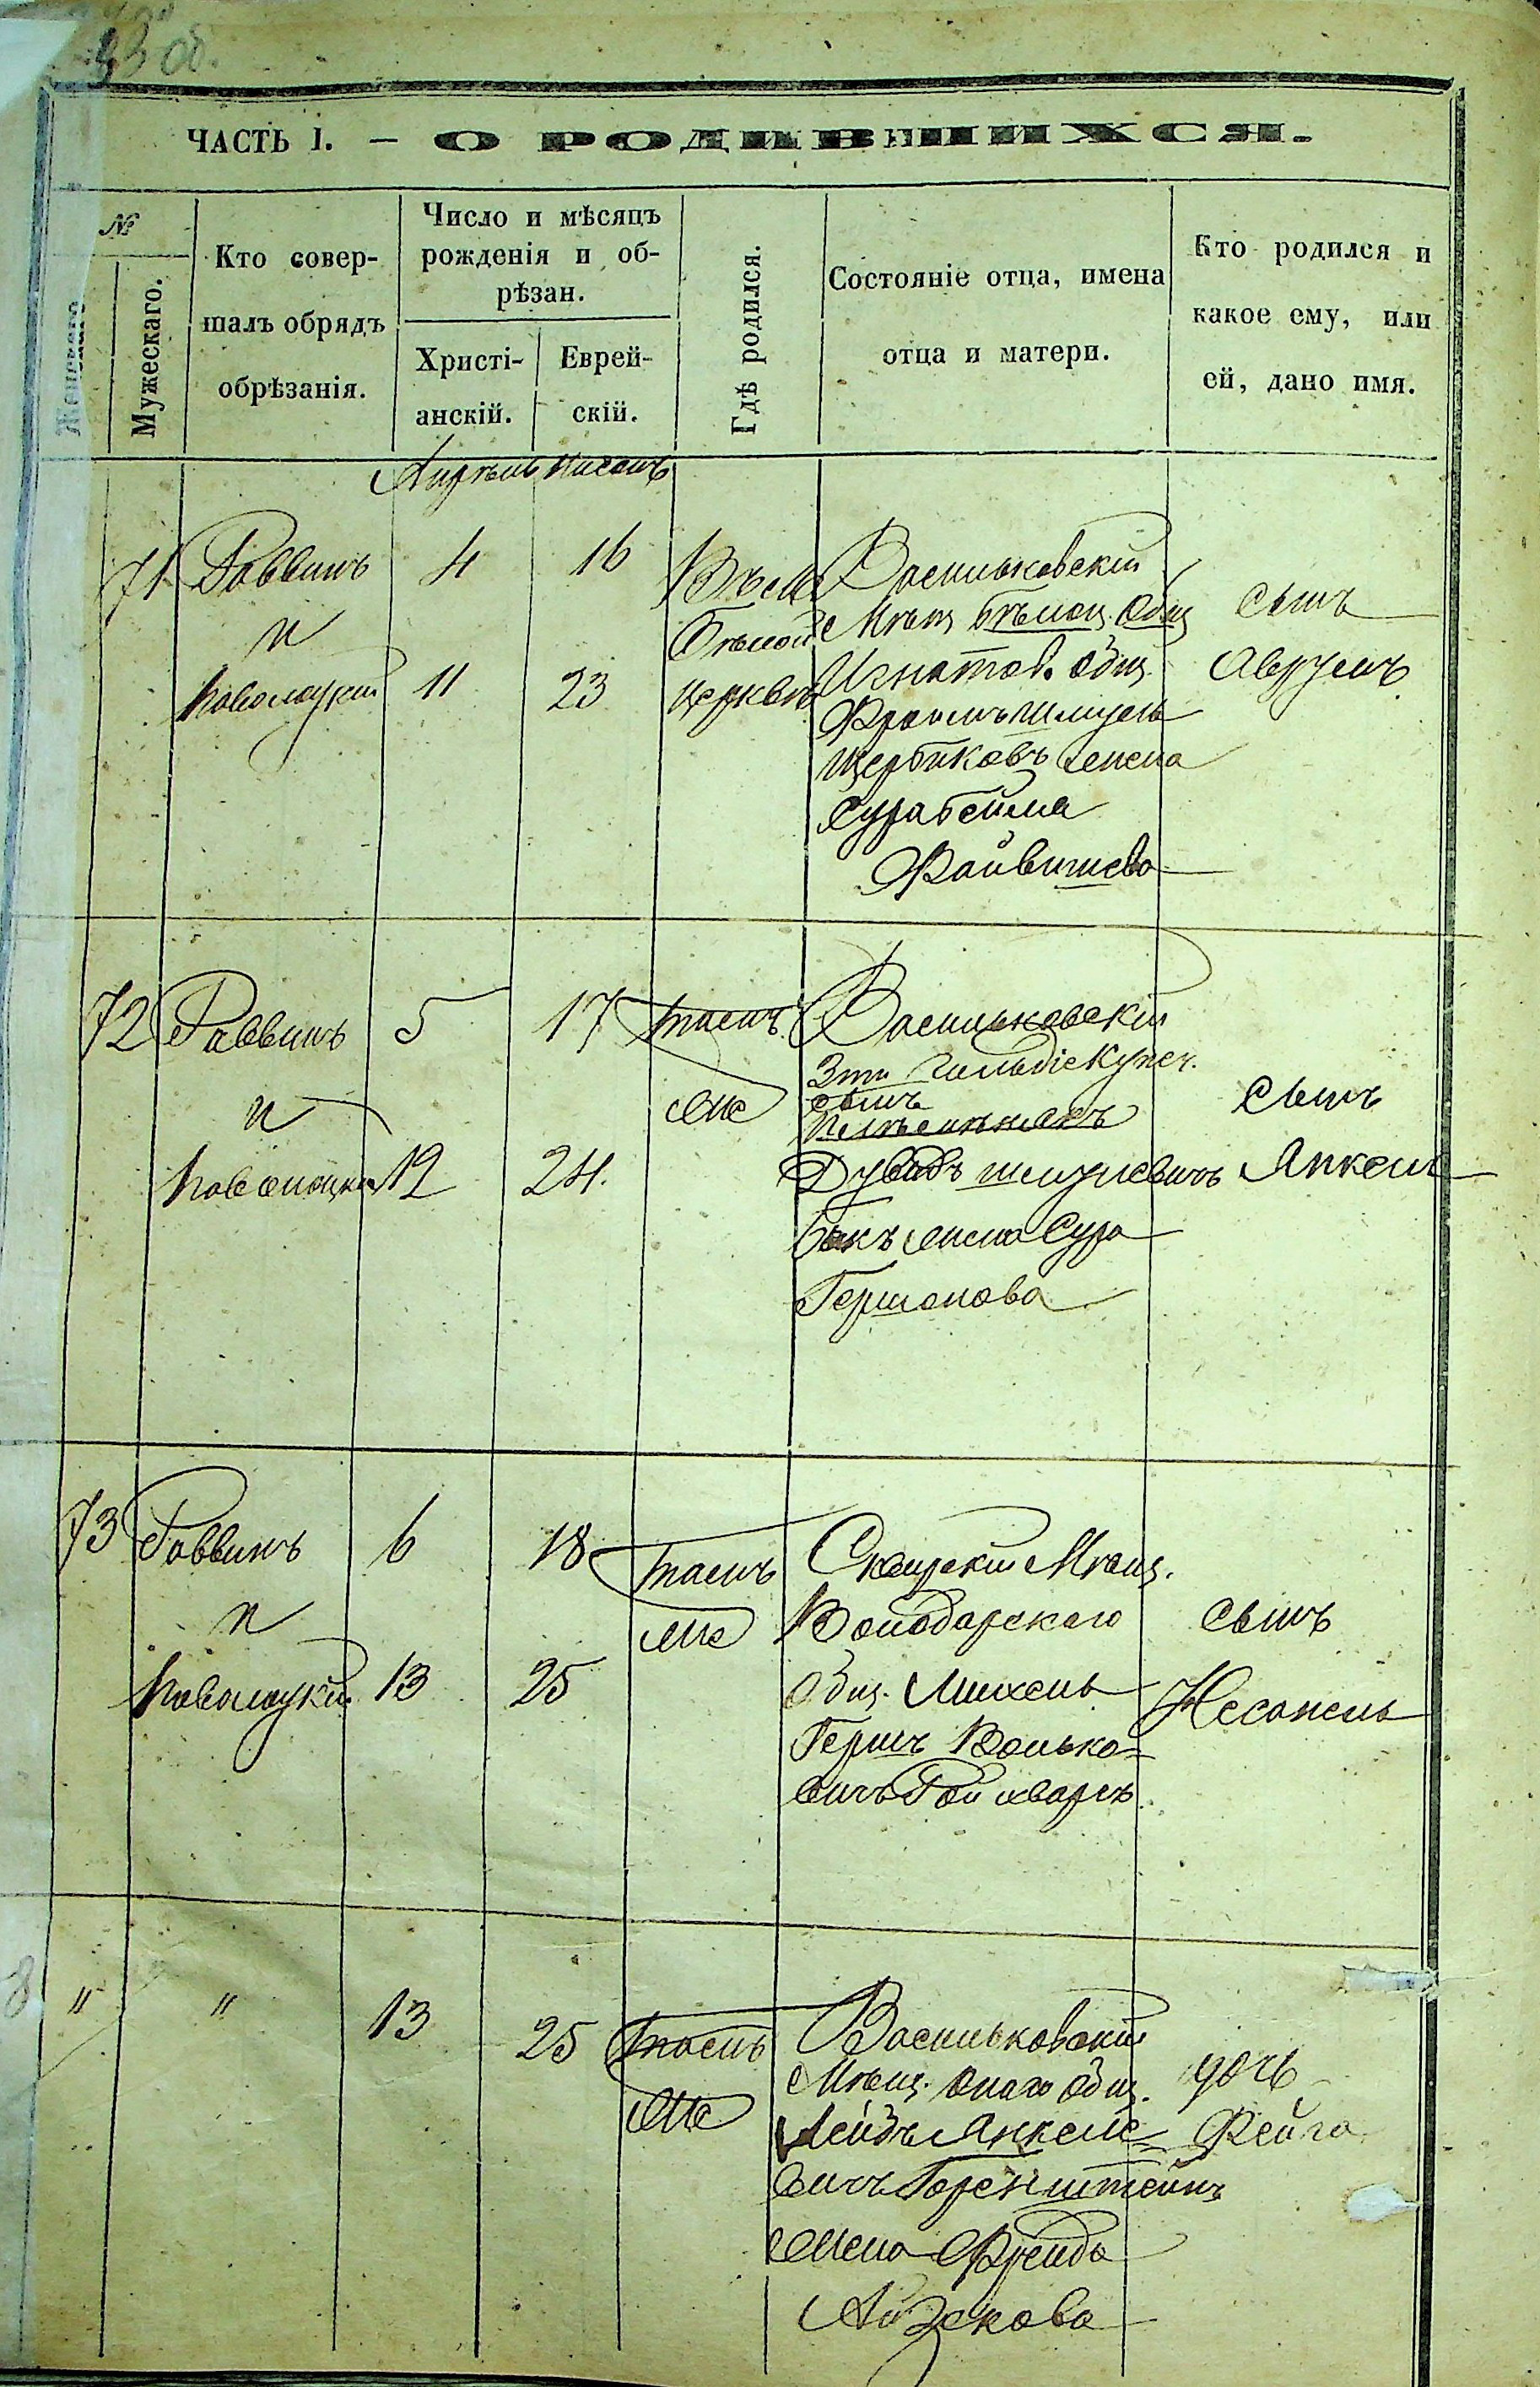 33 об.
ЧАСТЬ I. — О РОДИВШИХСЯ.
№
Женскаго
Мужескаго.
Кто совер-
шалъ обрядъ
обрѣзанія.
Число и мѣсяцъ
рожденія и об-
рѣзан.
Христі-
анскій.
Еврей-
скій.
Гдѣ родился.
Состояніе отца, имена
отца и матери.
Кто родился и
какое ему, или
ей, дано имя.
Апрѣль Нисонъ
71 Раввинъ 4 16
и
11 23
Въ м
Бѣлой
Церквѣ
Васильковскій
Мѣщ Бѣлоц. Общ
Игнатов. общ.
Фроимъ Шмуль
Щербиковъ жена
Сура Бейла
Файвишева
сынъ
Аврумъ
72 Раввинъ 5 17
и
12 24.
тамъ
же
Васильковскій
3ти Гильдіи Купеч.
сынъ
Дувидъ Шмулевичъ
Бакъ жена Сура
Гершонова
сынъ
Янкель
73 Раввинъ 6 18
и
13 25
тамъ
же
Сквирскій Мѣщ.
Володарскаго
Общ. Михель
Гершъ Волько-
вичъ
сынъ
Несанель
8 " " 13 25
тамъ
же
Васильковскій
Мѣщ. Онаго Общ.
Лейбъ Янкеле-
вичъ Горенштейнъ
жена Фрейда
Айзекова
дочь
Фейга